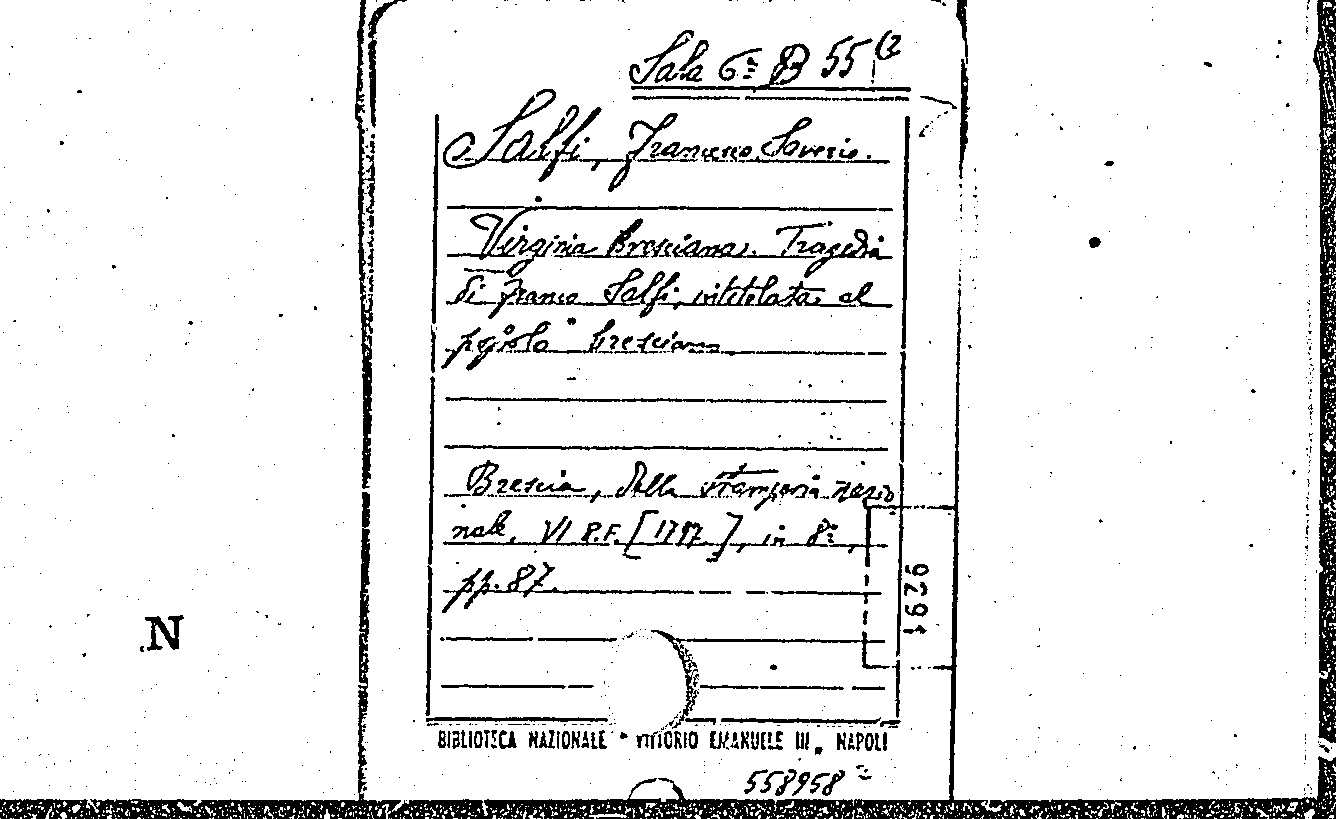 Sala 6ª B 55 (2
Salfi, Francesco Saverio.
Virginia Bresciana. Tragedia
di Franco Salfi, intitolata al
popolo bresciano
Brescia, dalla stamperia nazio
nale, VI R.F. [1797], in 8º,
pp. 87.
N
BIBLIOTECA NAZIONALE "VITTORIO EMANUELE III" NAPOLI
558958